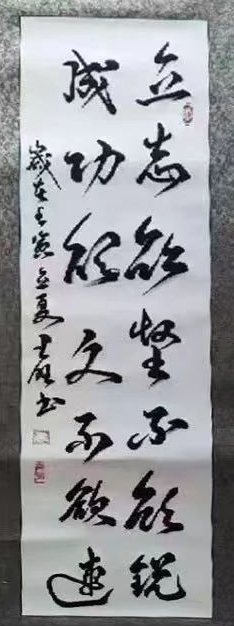 立志欲坚不欲锐
成功欲久不欲速
岁在壬寅立夏书